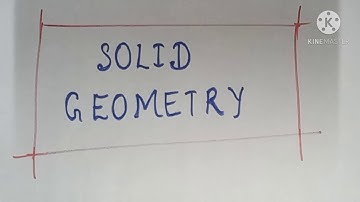 SOLID
GEOMETRY
KINEMASTER